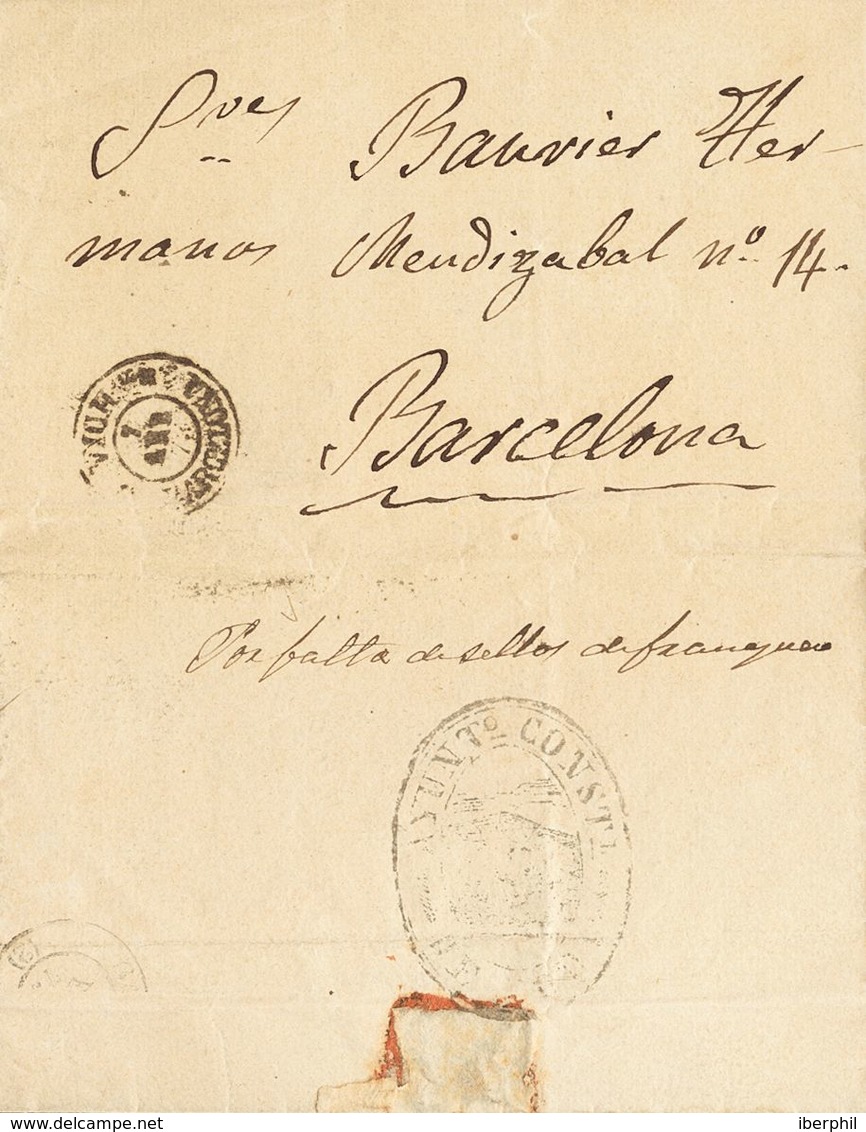 Sres Bauvier Her-
manos Mendizabal nº 14.
VICH
7
ABR
BARCELONA
Barcelona
Por falta de sellos de franqueo
AYUNTº CONSTL
(2)
delcampe.net
iberphil